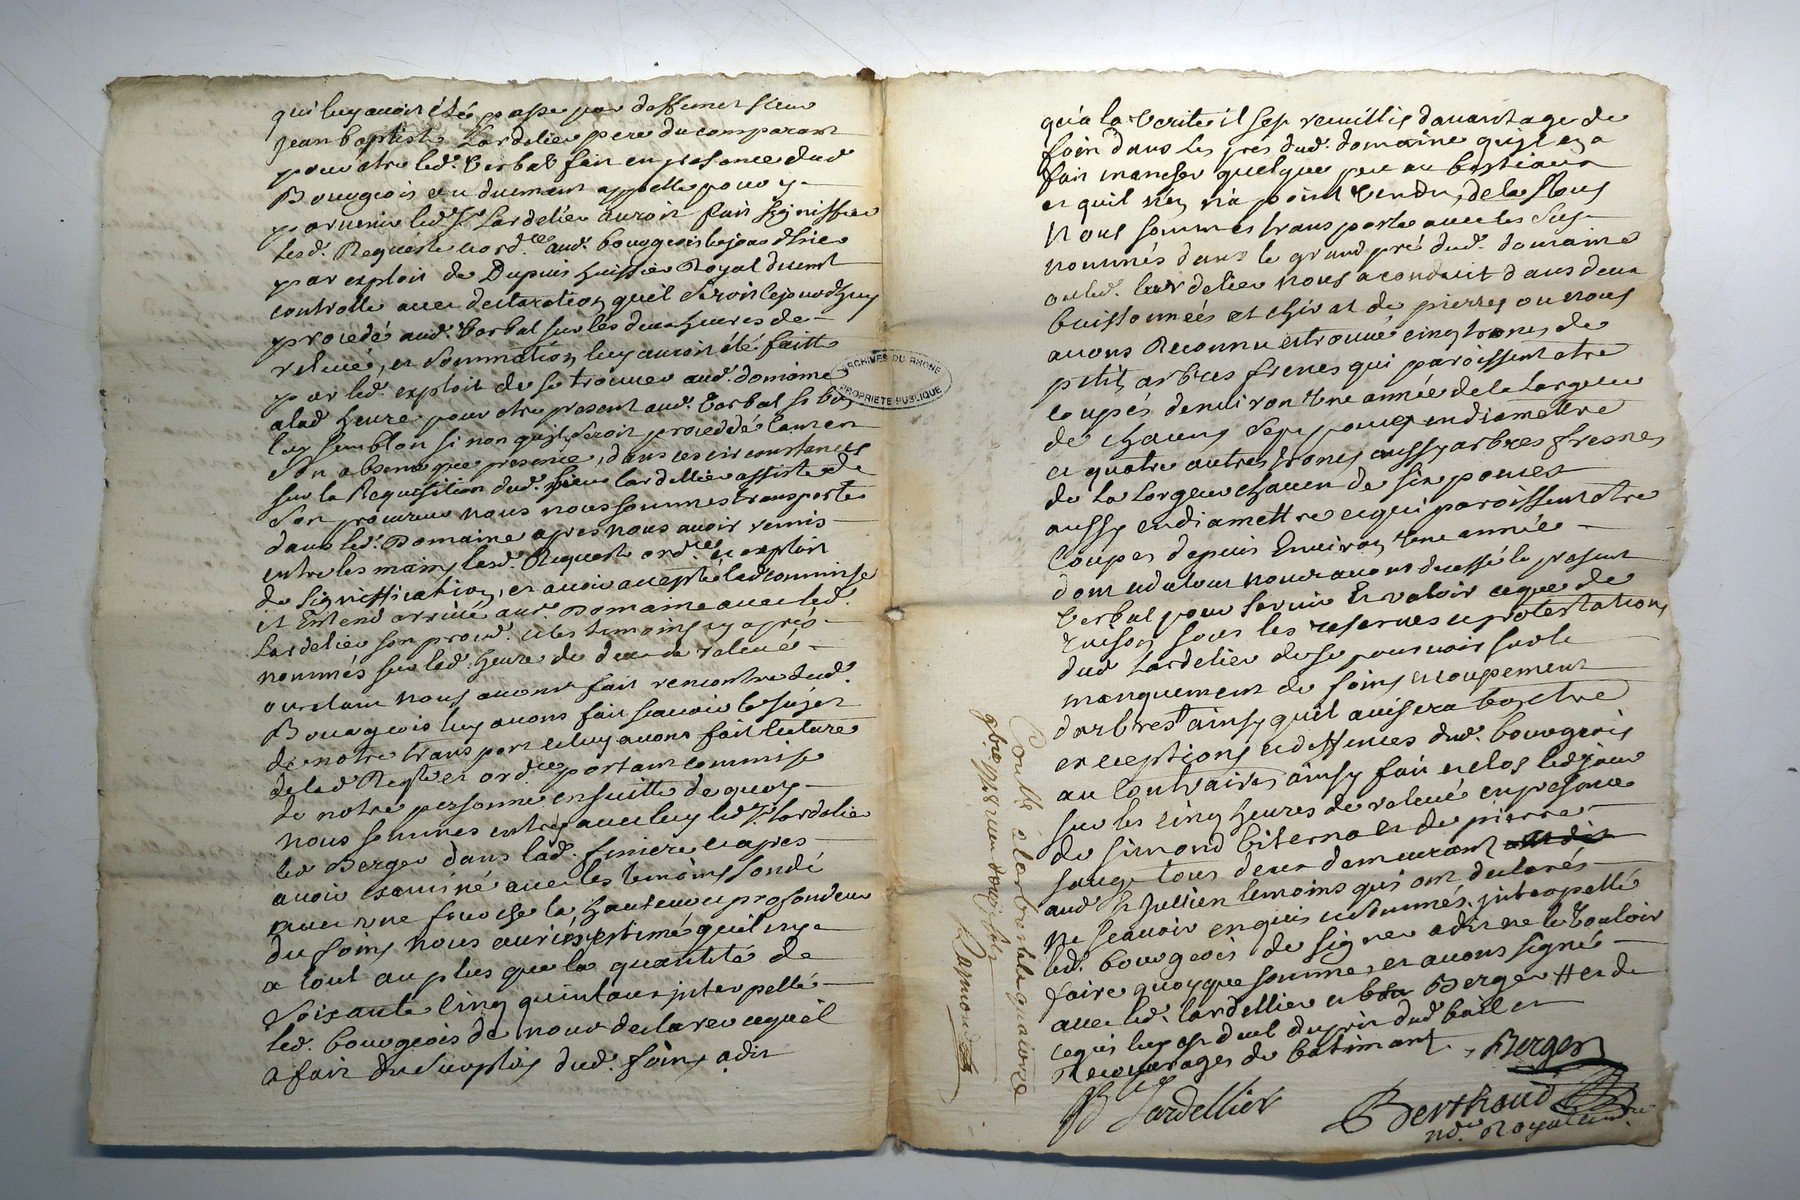 qui luy avoit été passé par deffunct sieur
Jean baptiste Lardelier pere du comparant
pour etre led. Verbal fait en presence dud
Bourgeois ou duement appellé pour y
parvenir led. Sr Lardelier auroit fait signiffier
lesd. Requeste et ord.ce aud. bourgeois le jour d'hier
par exploit de Dupuis huissier Royal duemt
controllé avec declaration qu'il seroit cejourdhuy
procedé aud. Verbal sur les deux heures de
relevée, et sommation luy auroit été faitte
par led. exploit de se trouver aud. domaine
a lad. heure pour etre present aud. Verbal si bon
luy sembloit si non qu'il seroit proceddé tant en
son absence que presence, dans ces circonstances
sur la Requisition dud. sieur Lardellier assisté de
son procureur nous nous sommes transporté
dans led. Domaine apres nous avoir remis
entre les mains lesd. Requeste ord.ce et exploit
de signiffication, et avoir accepté lad commise
et Estend arrivé aud. Domaine avec led.
Lardelier son procur. et les temoins cy apres
nommés sur led. heure de deux de relevé
ou etant nous avons fait rencontre dud.
Bourgeois luy avons fait scavoir le sujet
de notre transport et luy avons fait lecture
de lad Reqte et ord.ce portant commise
de notre personne ensuitte de quoy
nous sommes entré avec luy led Sr Lardelier
led Berger dans lad. finiere et apres
avoir examiné avec les temoins sondé
avec une fourche la hauteur et profondeur
du foins nous aurions estimé qu'il n'y
a tout au plus que la quantité de
soixante cinq quintaux interpellé
led. bourgeois de nous declarer ce qu'il
a fait du surplus dud. foins a dit
ARCHIVES DU RHONE
PROPRIETE PUBLIQUE
qu'à la verite il s'est reueilli davantage de
foin dans les prés dud. domaine qu'il en a
fait manger quelque peu au bestiaux
et qu'il n'en n'a point vendu, de la Nous
Nous sommes transporté avec les sus
nommés dans le grand pré dud. domaine
ou led. Lardelier nous a conduit dans deux
buissonnées et chirat de pierres ou nous
avons Reconnu et trouvé cinq troncs de
petits arbres frenes qui paroissent etre
coupés denviron Une année de la largeur
de chacuns sept pouces en diamettre
et quatre autres troncs aussy arbres fresnes
de la largeur chacun de six pouces
aussy en diamettre et qui paroissent etre
coupés depuis Environ Une année
dont du tout nous avons dressé le present
Verbal pour servir Et valoir ce que de
raison sous les reserves et protestations
dud Lardelier de se pourvoir sur le
manquement de foins et coupement
d'arbres ainsy quil avisera bon etre
exceptions et deffences dud. bourgeois
au contraires ainsy fait et clos led jour
sur les cinq heures de relevé en presence
de simond biterna et de pierre
sauge tous deux demeurant
aud St Jullien temoins qui ont declarés
ne scavoir enquis et sommés, interpellé
led. bourgeois de signer a dit ne le vouloir
faire quoyque sommé, et avons signé
avec led. Lardellier et Berger # et de
ce qui luy est deub du prix dud bail et
Recouvrages de batimant
Berger
JB Lardellier
Berthaud
no.re Royal
Conllé à larbresle le quatorze
9bre 1748 recu douze sols
Raymond